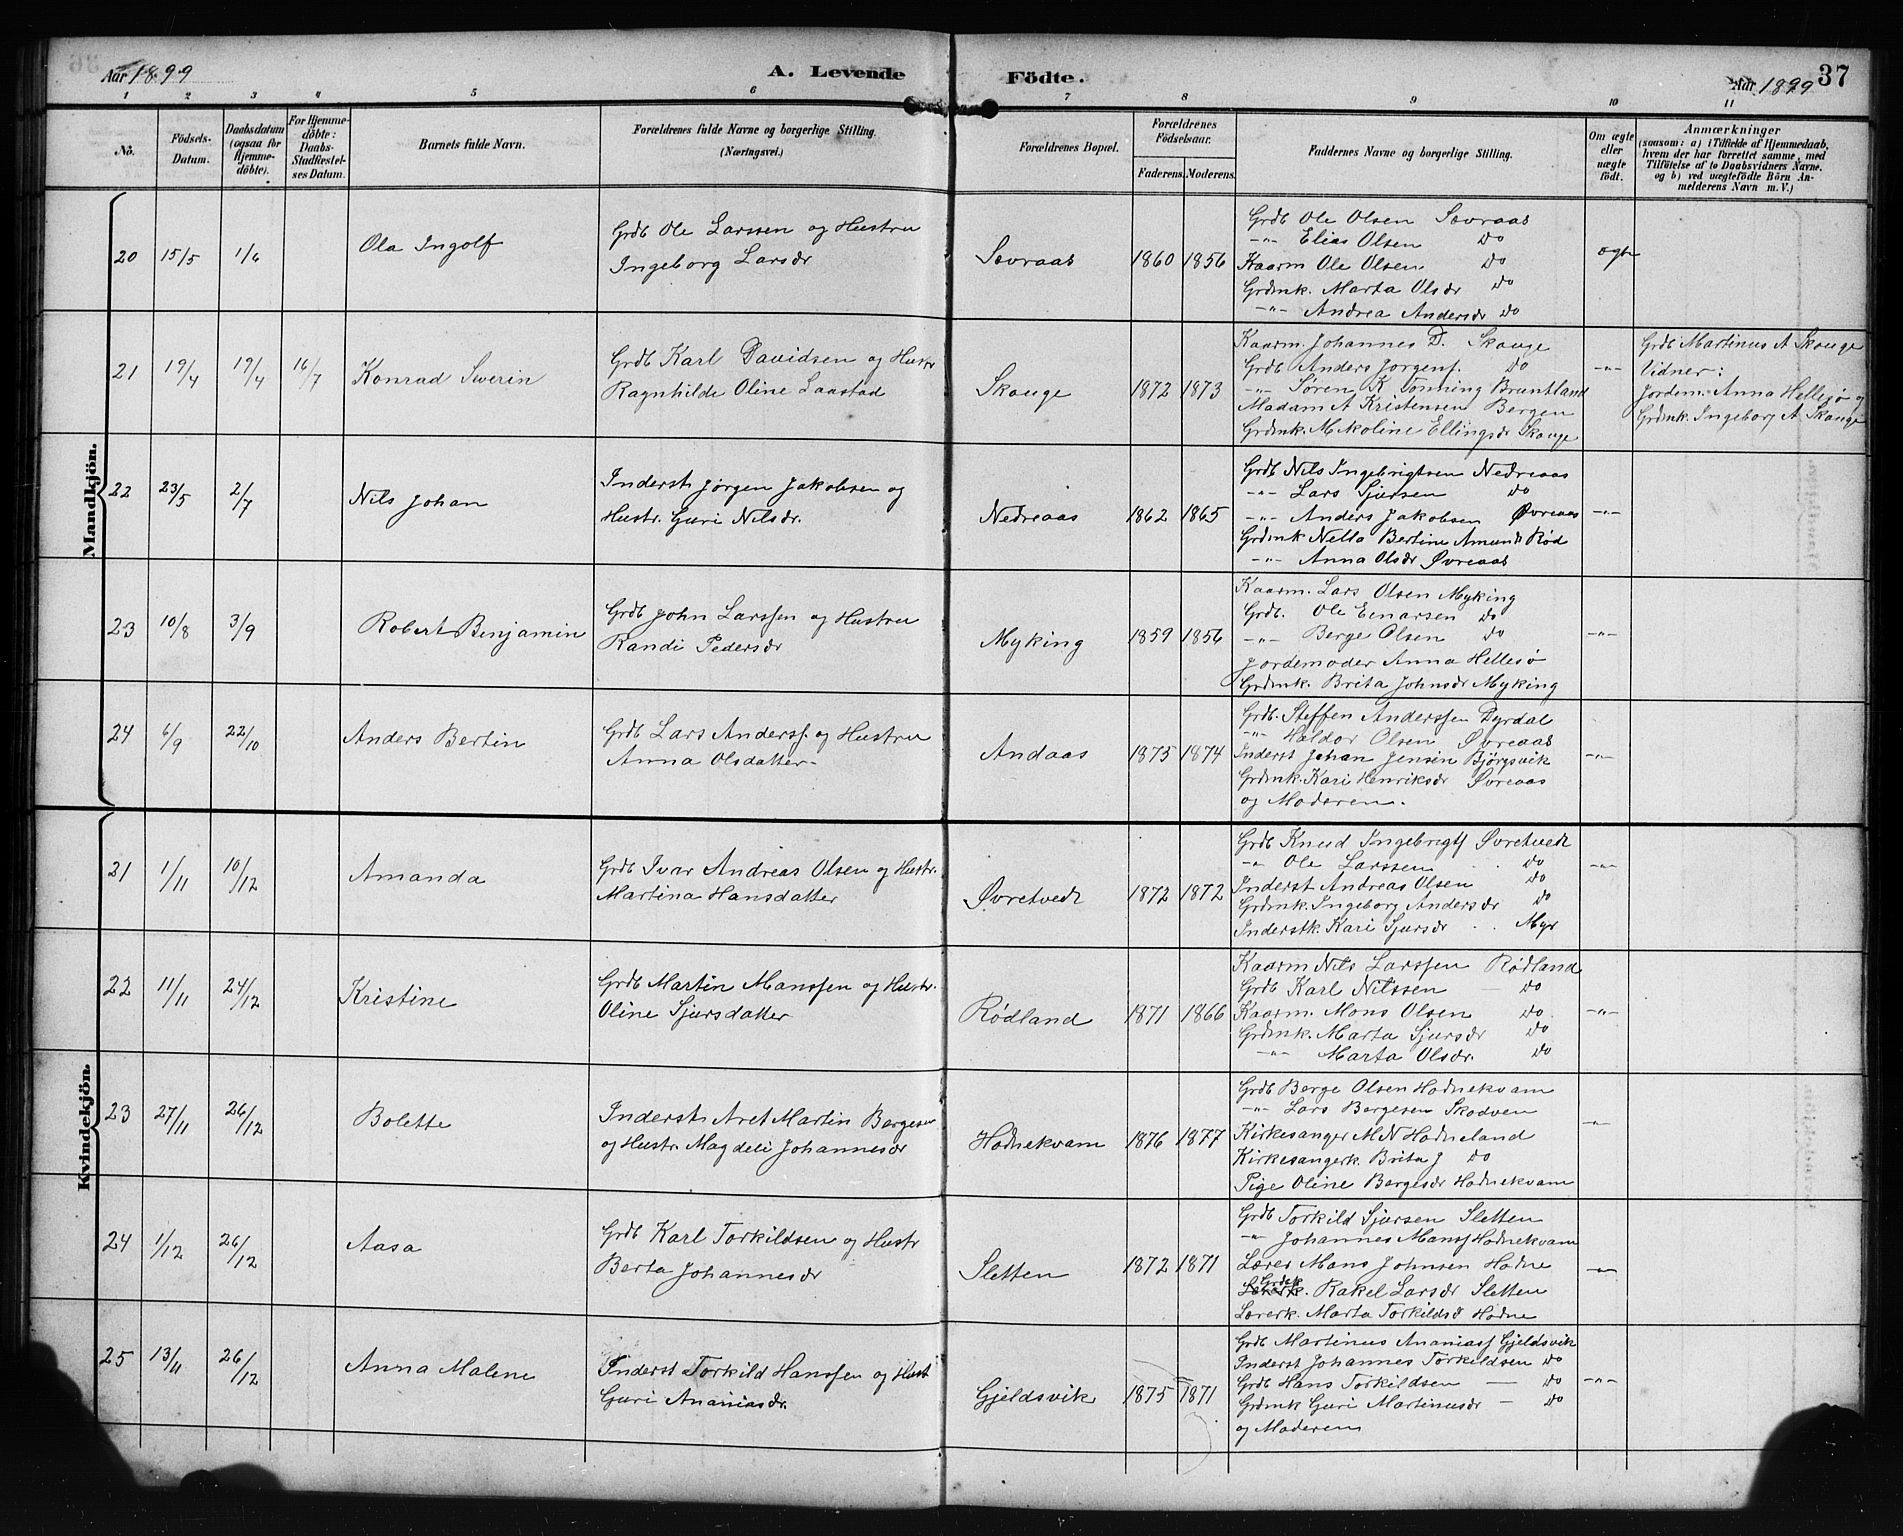 Aar 1899
A. Levende
Födte.
Aar 1899
37
1 2 3 4 5 6 7 8 9 10 11
No.
Födsels-
Datum.
Daabsdatum
(ogsaa for
Hjemme-
döbte).
For Hjemme-
döbte:
Daabs-
Stadfæstel-
ses Datum.
Barnets fulde Navn.
Forældrenes fulde Navne og borgerlige Stilling.
(Næringsvei.)
Forældrenes Bopæl.
Forældrenes
Födselsaar.
Faderens. Moderens.
Faddernes Navne og borgerlige Stilling.
Om ægte
eller
uægte
födt.
Anmærkninger
(saasom: a) i Tilfælde af Hjemmedaab,
hvem der har forrettet samme, med
Tilföielse af to Daabsvidners Navne.
og b) ved uægtefödte Börn An-
melderens Navn m. V.)
Mandkjön.
20 15/5 1/6
Ola Ingolf
Grdb Ole Larssen og Hustru
Ingeborg Larsdr
Sævraas
1860 1856
Grdb Ole Olsen Sævraas
-"- Elias Olsen Do
Kaarm Ole Olsen Do
Grdmk. Marta Olsdr Do
-"- Andrea Andersdr Do
ægte
21 19/4 19/4 16/7
Konrad Severin
Grdb Karl Davidsen og Hustr
Ragnhilde Oline Laastad
Skauge
1872 1873
Kaarm. Johannes D. Skauge
Grdb Anders Jørgens. Do
-"- Søren K Tønning Bruntland
Madam A Kristensen Bergen
Grdmk. Nikoline Ellingsdr Skauge
-"-
Grdb Martinus A Skauge
Vidner:
Jordem. Anna Hellesø og
Grdmk. Ingeborg A Skauge
22 23/5 2/7
Nils Johan
Inderst Jørgen Jakobsen og
Hustr. Guri Nilsdr.
Nedreaas
1862 1865
Grdb Nils Ingebrigtsen Nedreaas
-"- Lars Sjursen Do
-"- Anders Jakobsen Øvreaas
Grdmk Nella Bertine Amunds Rød
-"- Anna Olsdr Øvreaas
-"-
23 10/8 3/9
Robert Benjamin
Grdb John Larssen og Hustru
Randi Pedersdr
Myking
1859 1856
Kaarm. Lars Olsen Myking
Grdb. Ole Einarsen Do
-"- Berge Olsen Do
Jordemoder Anna Hellesø
Grdmk. Brita Johnsdr Myking
-"-
24 6/9 22/10
Anders Bertin
Grdb Lars Anderss. og Hustru
Anna Olsdatter
Andaas
1873 1874
Grdb. Steffen Anderssen Dyrdal
-"- Haldor Olsen Øvreaas
Inderst Johan Jensen Bjørgsvik
Grdmk. Kari Henriksdr Øvreaas
og Moderen.
-"-
Kvindekjön.
21 1/11 10/12
Amanda
Grdb Ivar Andreas Olsen og Hustr.
Martina Hansdatter
Øvretvedt
1872 1872
Grdb Knud Ingebrigts Øvretvedt
-"- Ole Larssen Do
Inderst Andreas Olsen Do
Grdmk. Ingeborg Andersdr Do
Inderstk. Kari Sjursdr Myr
-"-
22 11/11 24/12
Kristine
Grdb Martin Monssen og Hustr.
Oline Sjursdatter
Rødland
1871 1866
Kaarm Nils Larssen Rødland
Grdb Karl Nilssen Do
Kaarm. Mons Olsen Do
Grdmk. Marta Sjursdr Do
-"- Marta Olsdr. Do
-"-
23 27/11 26/12
Bolette
Inderst Aret Martin Bergesen
og Hustr Magdeli Johannesdr
Hodnekvam
1876 1877
Grdb Berge Olsen Hodnekvam
-"- Lars Bergesen Skodven
Kirkesanger M N Hodneland
Kirkesangerk. Brita J Do
Pige Oline Bergesdr Hodnekvam
-"-
24 1/12 26/12
Aasa
Grdb Karl Torkildsen og Hustr
Berta Johannesdr
Sletten
1872 1871
Grdb Torkild Sjursen Sletten
-"- Johannes Monss Hodnekvam
Lærer Mons Johnsen Hodne
Grdmk. Rakel Larsdr Sletten
Lærerk. Marta Torkildsd Hodne
-"-
25 13/11 26/12
Anna Malene
Inderst Torkild Hanssen og Hust
Guri Ananiasdr.
Gjeldsvik
1875 1871
Grdb Martinus Ananiass Gjeldsvik
Inderst Johannes Torkildsen Do
Grdb Hans Torkildsen Do
Grdmk Guri Martinusdr Do
og Moderen
-"-